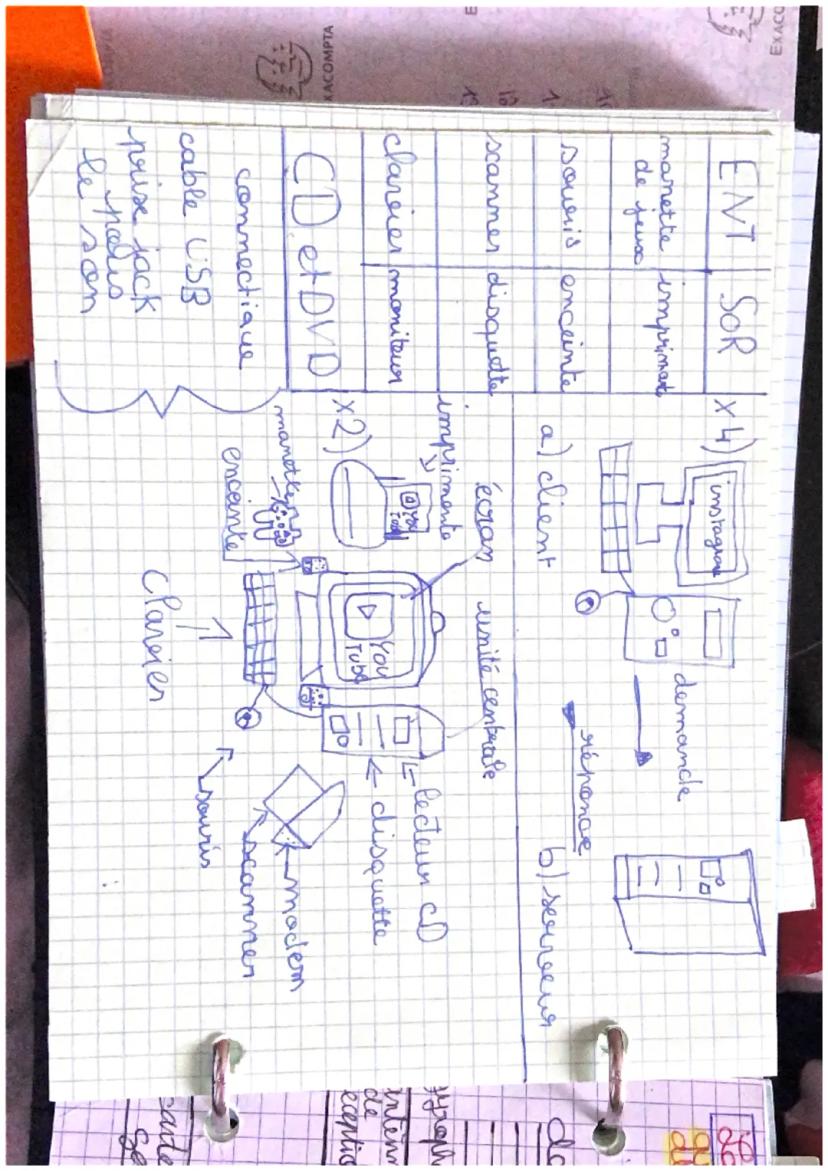 ENT SOR
manette
de jeux
imprimante
souris enceinte
scanner disquette
clavier moniteur
CD et DVD
connectique
cable USB
prise jack
pour
le son
x4)
instagram
demande
réponce
a) client
b) serveur
x2)
imprimente
écran
unité centrale
You
Tube
lecteur CD
disquette
manette
enceinte
clavier
souris
modem
scanner
EXACOMPTA